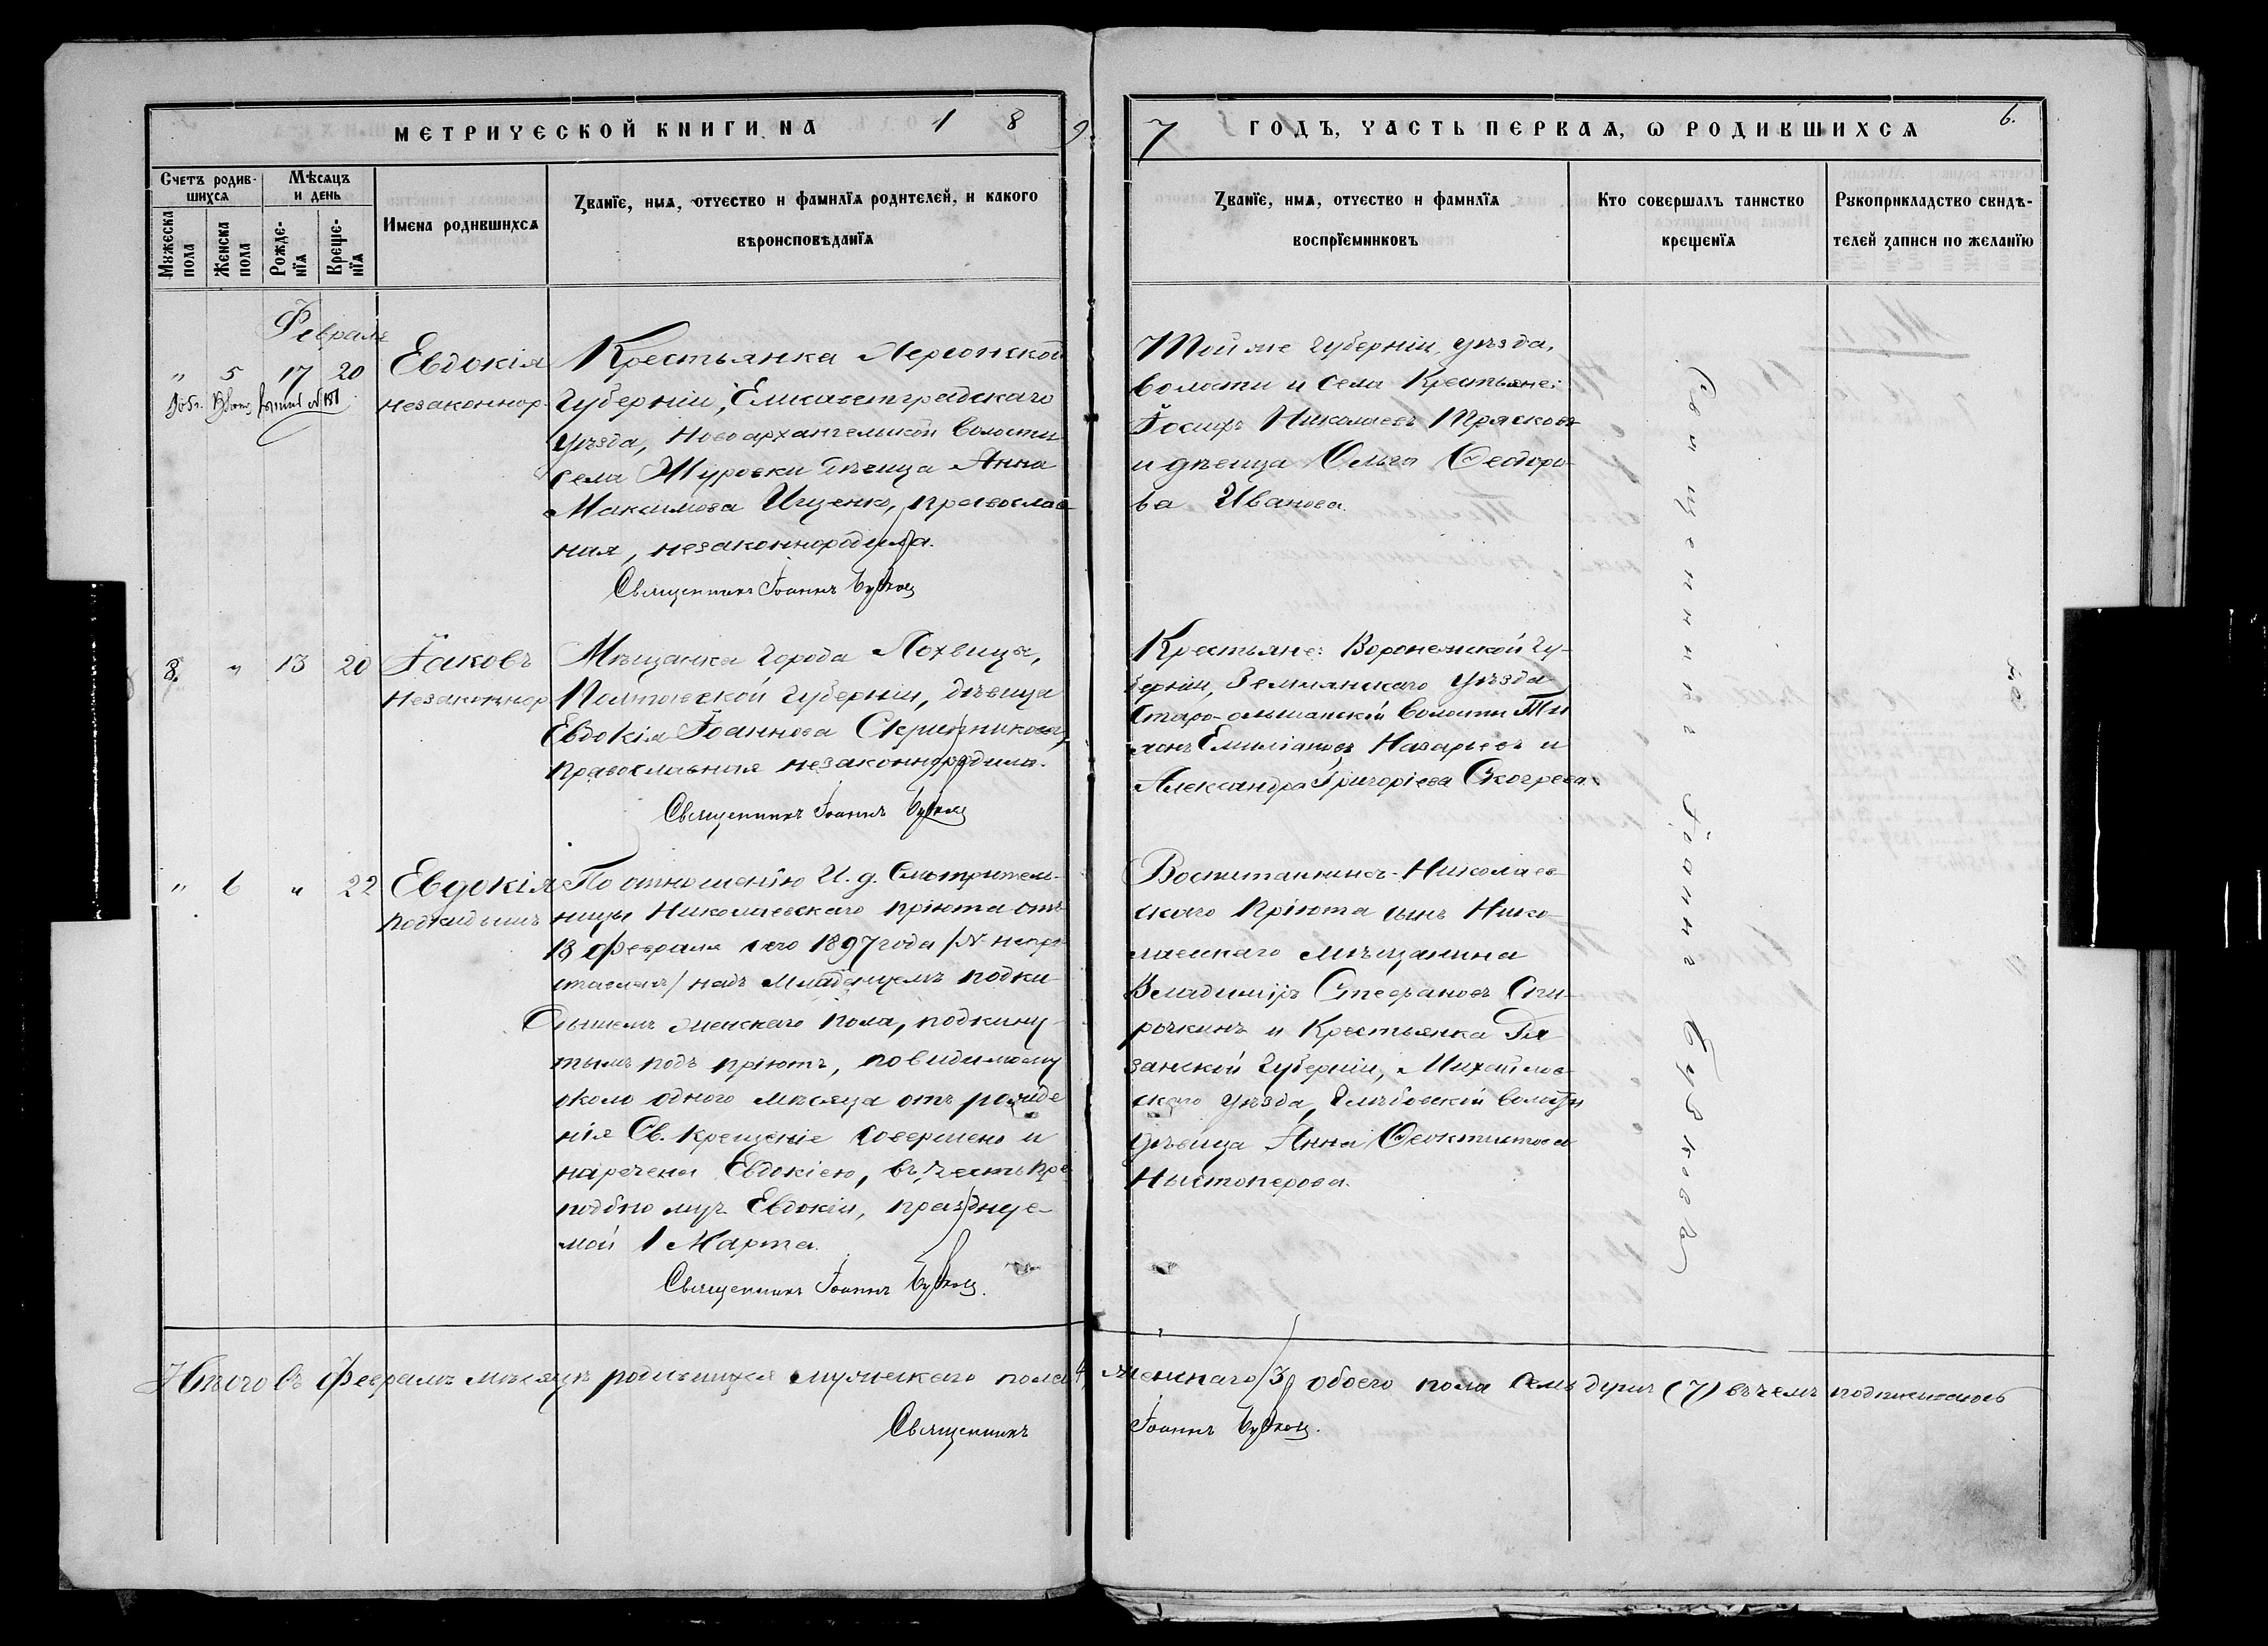 МЕТРИЧЕСКОЙ КНИГИ НА 1 8 9
7 ГОДЪ, ЧАСТЬ ПЕРВАѦ, Ѡ РОДИВШИХСѦ
6.
Счетъ родив-
шихсѧ
Мѣсѧцъ
и день
Мꙋжеска
пола
Женска
пола
Рожде-
нїѧ
Креще-
нїѧ
Имена родившихсѧ
Званїе, имѧ, отчество и фамилїѧ родителей, и какого
вѣроисповѣданїѧ
Званїе, имѧ, отчество и фамилїѧ
воспрїемниковъ
Кто совершалъ таинство
крещенїѧ
Рꙋкоприкладство свидѣ-
телей записи по желанїю
Февраль
" 5 17 20
Евдокія
незаконнор.
Крестьянка Херсонской
Губерніи, Елисаветградскаго
уѣзда, Новоархангельской волости
села Журовки дѣвица Анна
Максимова Ищенко, православ
ная, незаконнородила.
Священникъ Іоаннъ
Той же губерніи, уѣзда,
волости и села Крестьяне:
Іосифъ Николаевъ Трясковъ
и дѣвица Ольга Ѳеодоро
ва Иванова.
8. " 13 20
Іаковъ
Незаконнор
Мѣщанка города Лохвицы,
Полтавской губерніи, дѣвица
Евдокія Іоаннова Скрипникова,
православная незаконнородила.
Священникъ Іоаннъ
Крестьяне: Воронежской Гу-
берніи, Землянскаго уѣзда
Старо-ольшанской волости Ти
хонъ Емиліановъ Назарьевъ и
Александра Григоріева
" 6 " 22
Евдокія
подкидышъ
По отношенію И. д. Смотритель-
ницы Николаевскаго пріюта отъ
13 февраля сего 1897 года /№ непро
ставленъ/ надъ младенцемъ подки
дышемъ женскаго пола, подкину-
тымъ подъ пріютъ, повидимому
около одного мѣсяца отъ рожде
нія Св. Крещеніе совершено и
наречена Евдокіею, въ честь пре
подобно муч. Евдокіи, празднуе-
мой 1 Марта.
Священникъ Іоаннъ
Воспитанникъ Николаев
скаго Пріюта сынъ Нико-
лаевскаго мѣщанина
Владиміръ Стефановъ Спи-
рочкинъ и Крестьянка Ря
занской Губерніи, Михайлов
скаго уѣзда, Глѣбовской волости
дѣвица Анна Ѳеоктистова
Священникъ Іоаннъ
Итого въ Февралѣ мѣсяцѣ родившихся мужескаго пола 4, женскаго 3, обоего пола семь душъ (7) въ чемъ подписываюсь
Священникъ Іоаннъ